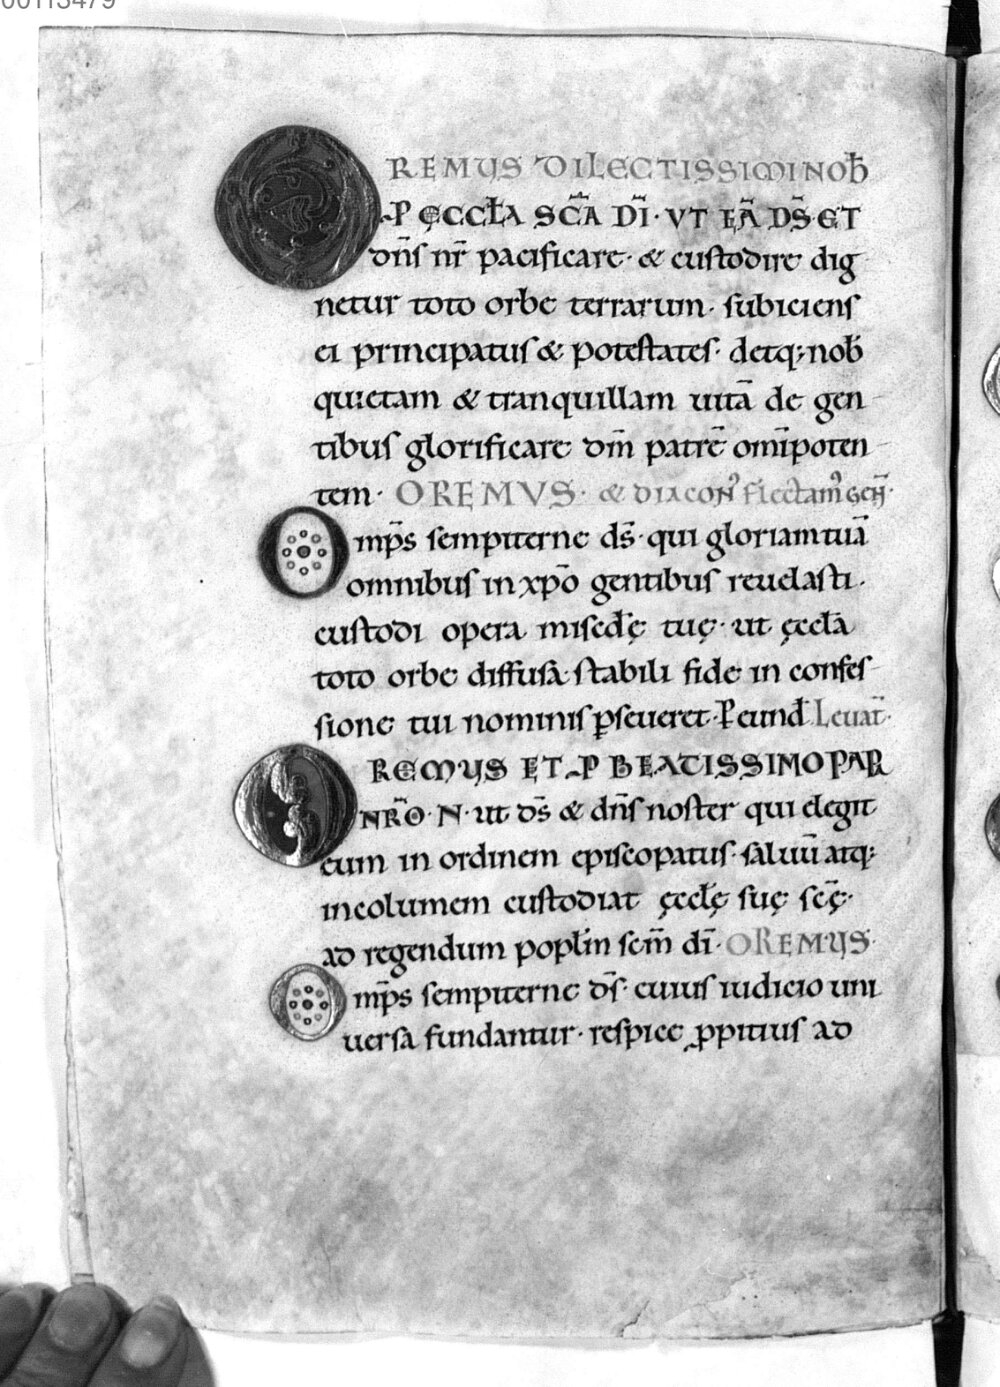 OREMUS DILECTISSIMI NOB̄
P ĘCCĹA SC̄A DĪ · VT EĀ DS̄ ET
dn̄s nr̄ pacificare · & custodire dig
netur toto orbe terrarum · subiciens
ei principatus & potestates · detq; nob̄
quietam & tranquillam uitā de gen
tibus glorificare dm̄ patrē omīpoten
tem · OREMVS · & diacon᾿ flectam᾿ geñ ·
Omp̄s sempiterne ds̄ · qui gloriam tuā
omnibus in xp̄o gentibus reuelasti ·
custodi opera miscđę tuę · ut ęccła
toto orbe diffusa · stabili fide in confes
sione tui nominis ꝑseueret · P eund̄ Leuat̄ ·
OREMUS ET P BEATISSIMO PAP
NR̄O · N · ut ds̄ & dn̄s noster qui elegit
eum in ordinem episcopatus · saluū atq;
incolumem custodiat ęcclę suę scę̄ ·
ad regendum popłm scm̄ dī · OREMUS
Omp̄s sempiterne ds̄ · cuius iudicio uni
uersa fundantur · respice ꝓpitius ad